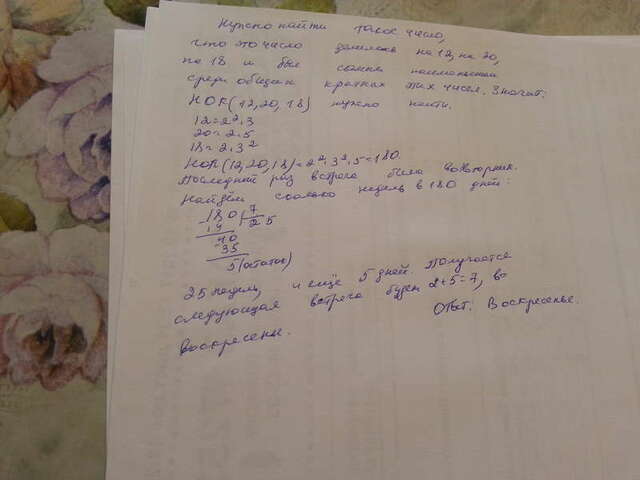 Нужно найти такое число,
что это число делилось на 12, на 20,
на 18 и было самым наименьшим
среди общих кратных этих чисел. Значит:
НОК(12,20,18) нужно найти.
12=2²·3
20=2·5
18=2·3²
НОК(12,20,18)=2²·3²·5=180.
Последний раз встреча была во вторник.
Найдём сколько недель в 180 дней:
180 7
14 25
40
35
5(остаток)
25 недель, и ещё 5 дней. Получается
следующая встреча будет 2+5=7, во
воскресенье. Ответ: Воскресенье.